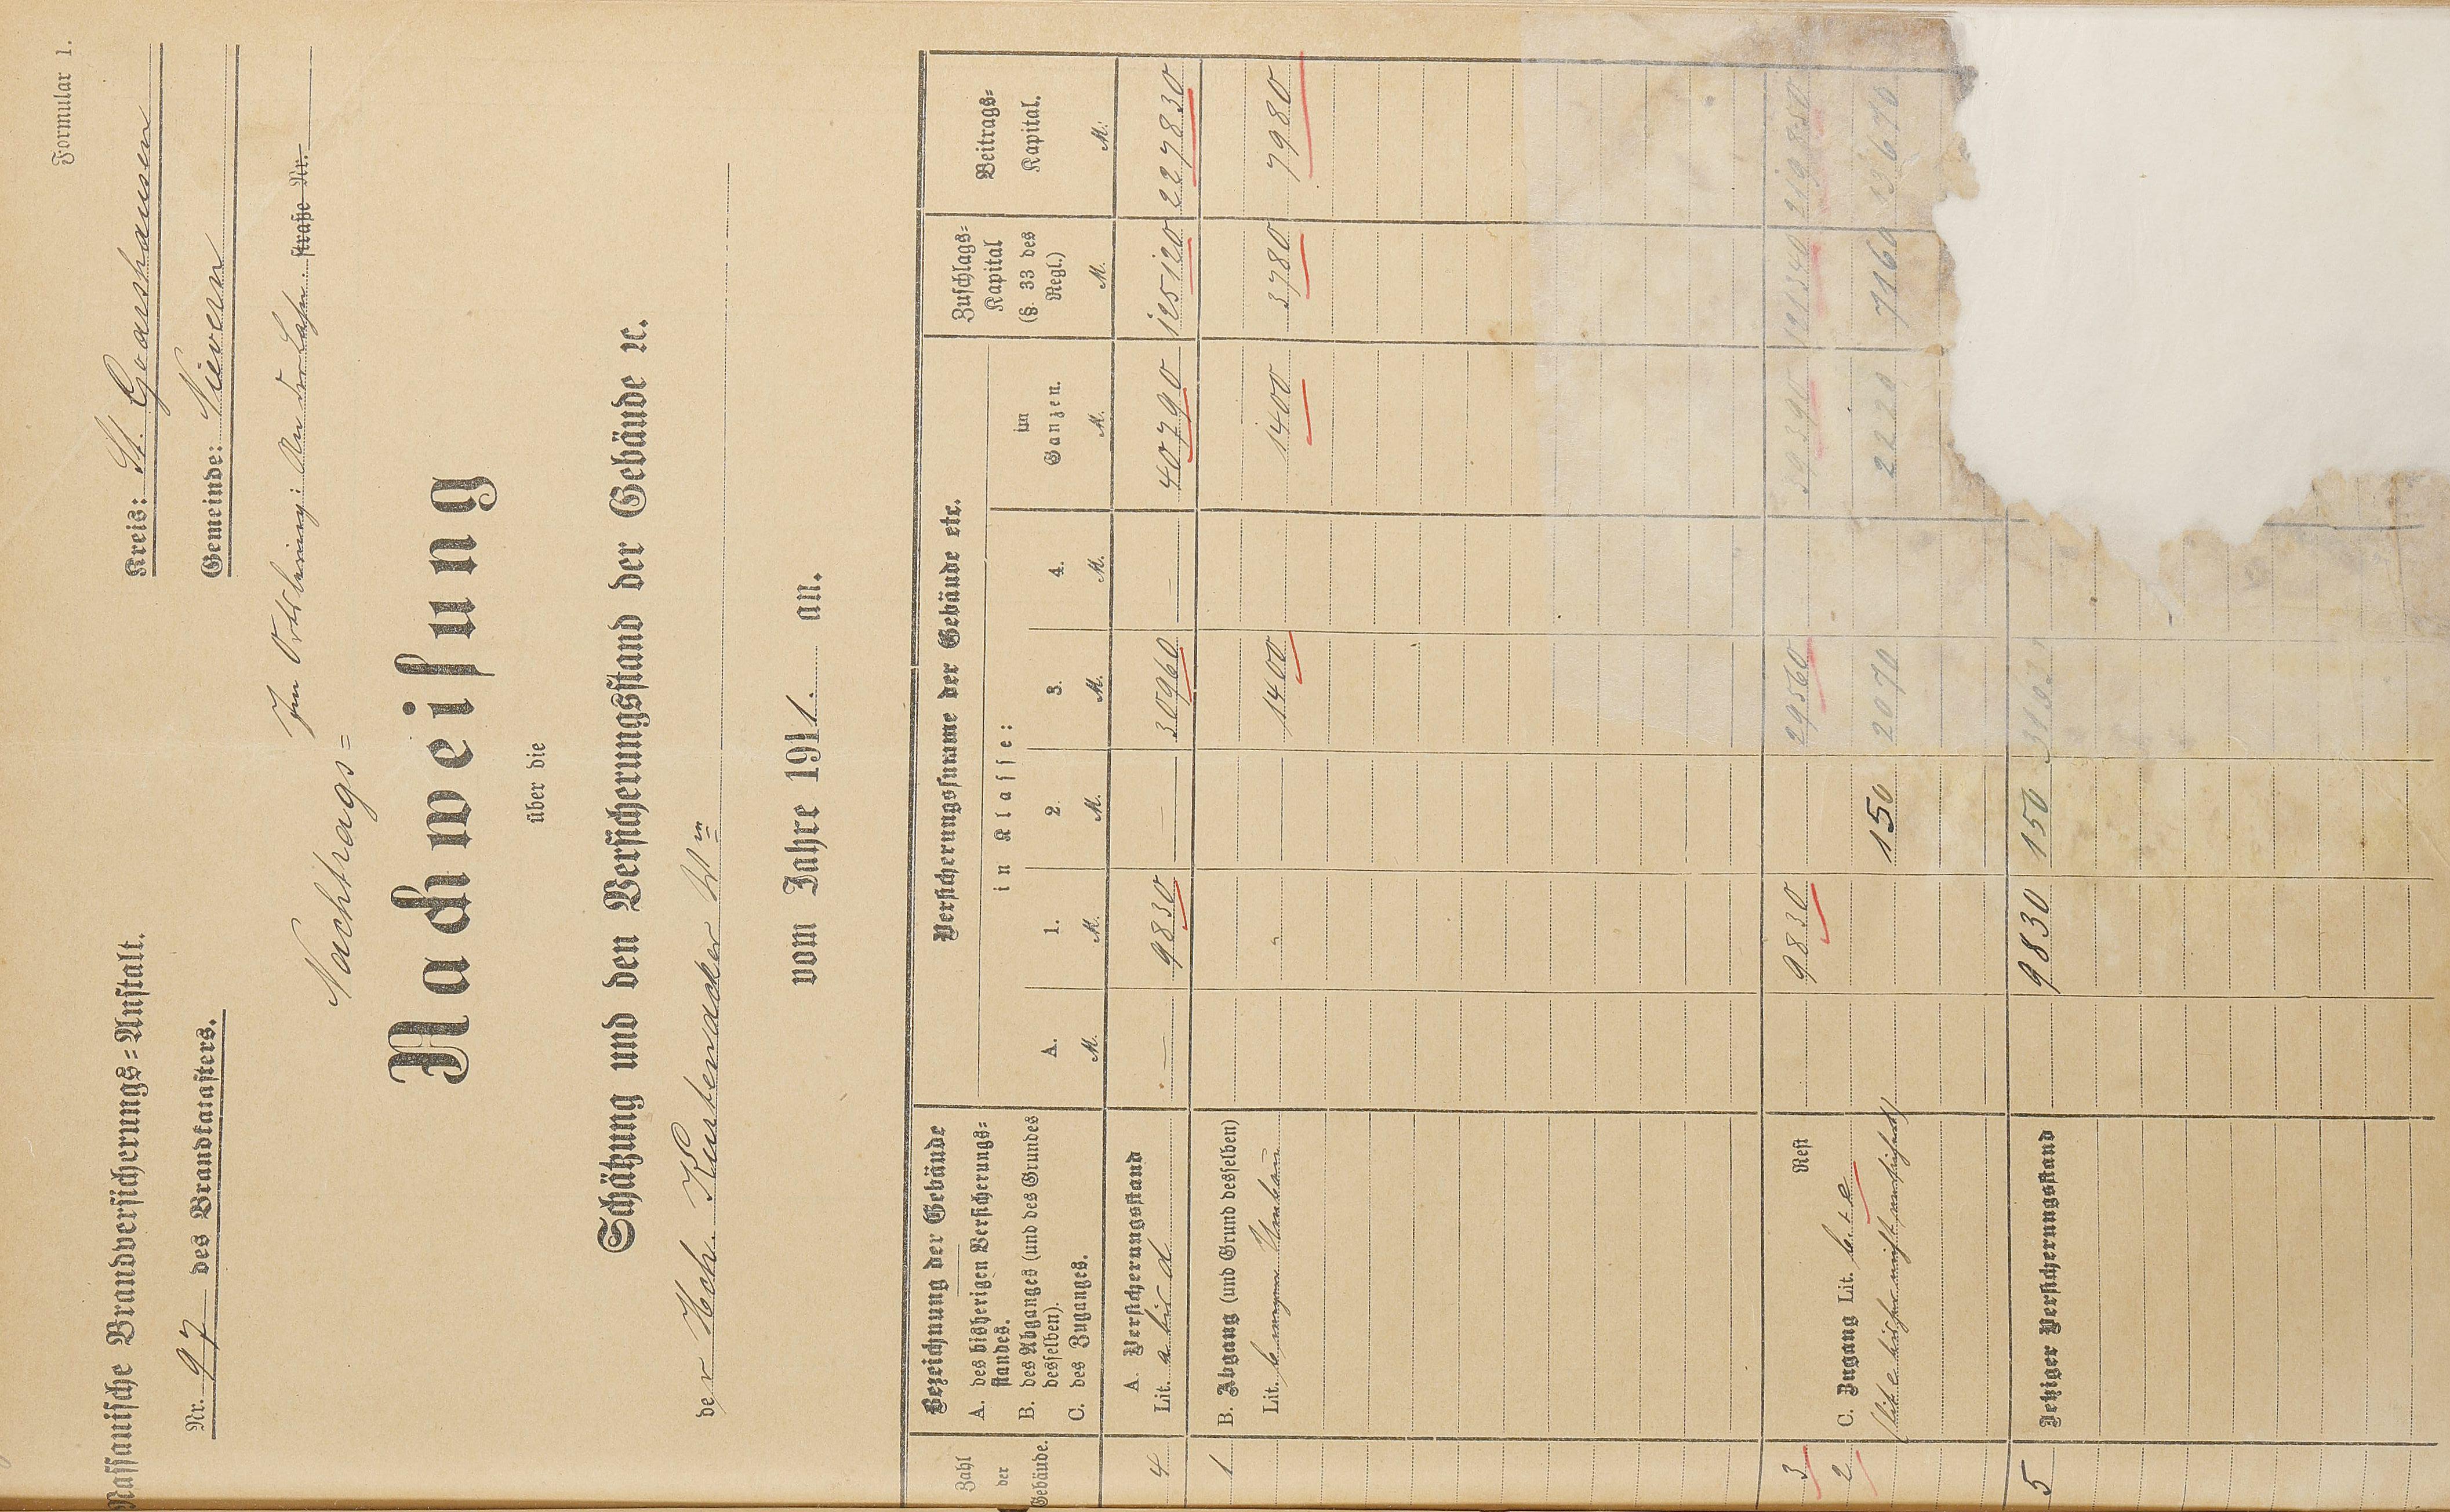 Formular 1.
Nassauische Brandversicherungs-Anstalt.
Kreis: St. Goarshausen
Nr. 97 des Brandkatasters.
Gemeinde: Nievern
In Ortsbering: An der Lahn straße Nr.
Nachtrags-
Nachweisung
über die
Schätzung und den Versicherungsstand der Gebäude ꝛc.
der Hch. Kurbenacker Wwe
vom Jahre 1911. an.
Zahl der Gebäude.
Bezeichnung der Gebäude
A. des bisherigen Versicherungs-
standes.
B. des Abganges (und des Grundes
desselben).
C. des Zuganges.
Versicherungssumme der Gebäude etc.
in Klasse:
A. 1. 2. 3. 4. im Ganzen.
M. M. M. M. M. M.
Zuschlags-
Kapital
(§. 33 des
Regl.)
M.
Beitrags-
Kapital.
M.
A. Versicherungsstand
4 Lit. a bis d — 9830 — 30960 — 40790 125120 227830
1 B. Abgang (und Grund desselben)
Lit. b wegen Umbau 1400 1400 3780 7980
3 Rest 9830 29560 39390 121340 219850
2 C. Zugang Lit. b + e
(Lit. e bisher nicht versichert) 150 2070 2220 7160
5 Jetziger Versicherungsstand 9830 150